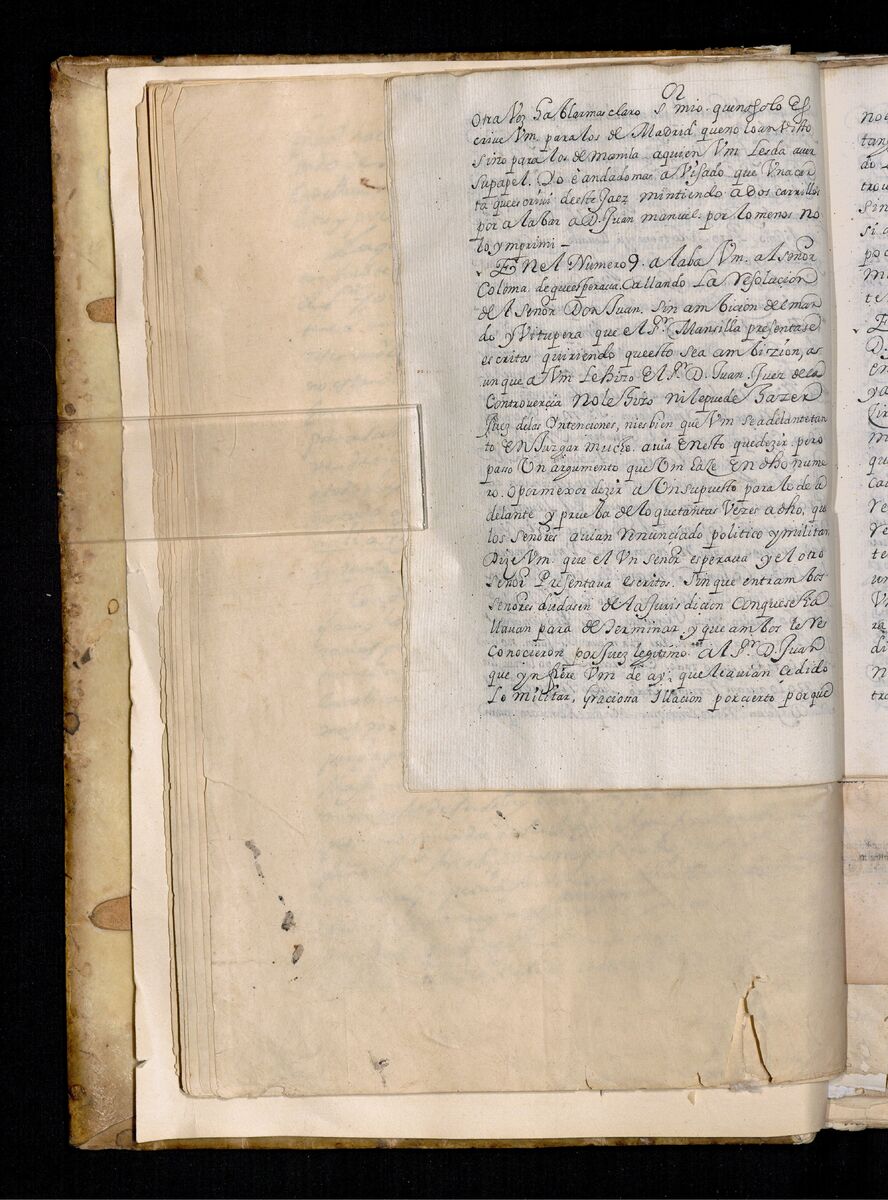 Otra Vez hablarmas claro S.r mio. queno solo Es
crive Vm. para los de Madrid queno loan visto
sino para los de manila aquien Vm Lesda aver
su papel. Yo è andado mas avisado que Vnacar
ta que escriui de este Jaez mintiendo a dos carrillos
por alabar a D. Juan manuel. por lo menos no
lo ymprimi –
En el Numero 9. alaba Vm. al señor
Coloma. de que esperava. Callando La resolucion
del señor Don Juan. sin ambicion del man
do y Vitupera que el S.r Mansilla presentase
escritos quiriendo que esto sea ambizion, as
un que a Vm Le hizo el S.r D. Juan. Juez de la
Controvercia no le hizo ni le puede hazer
Juez de las Yntenciones, ni es bien que Vm se adelante tan
to en Juzgar mucho. avia en esto que dezir, pero
paso Un argumento que Vm haze en dho nume
ro. o por mexor dezir a Un supuesto para lo de a
delante y prueba de lo que tantas Vezes a dho, que
los Señores avian renunciado politico y militar
Dize Vm. que el Vn señor esperava y el otro
Señor Presentava escritos. sin que entrambos
Señores dudasen de la Jurisdicion Conque se ha
llavan para determinar y que ambos le re
Conocieron por Juez legitimo. al S.r D. Juan
que ynfiere Vm de ay. que le avian cedido
Lo militar, Graciosa Illacion por cierto porque